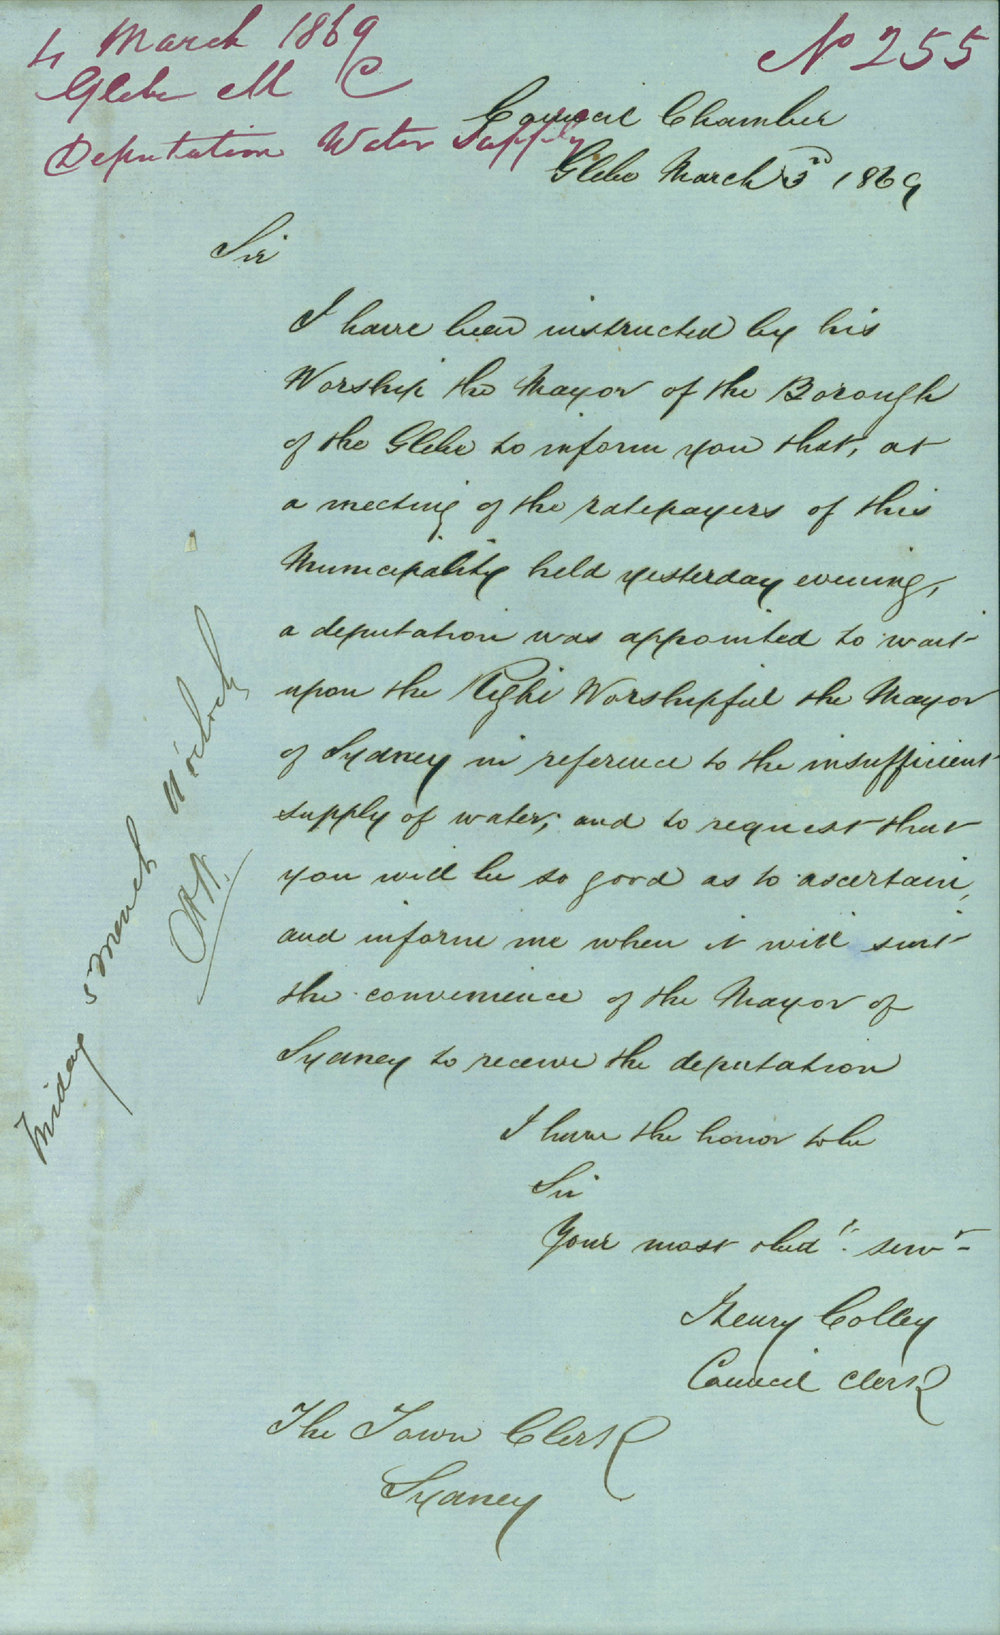 4 March 1869
Glebe M C
Deputation Water Supply
No 255
Council Chamber
Glebe March 3rd 1869
Sir
I have been instructed by his
Worship the Mayor of the Borough
of the Glebe to inform you that, at
a meeting of the ratepayers of this
Municipality held yesterday evening,
a deputation was appointed to wait
upon the Right Worshipful the Mayor
of Sydney in reference to the insufficient
supply of water; and to request that
you will be so good as to ascertain,
and inform me when it will suit
the convenience of the Mayor of
Sydney to receive the deputation
I have the honor to be
Sir
Your most obedt. servt
Henry Colley
Council Clerk
The Town Clerk
Sydney
Friday 5 March 11 o'clock